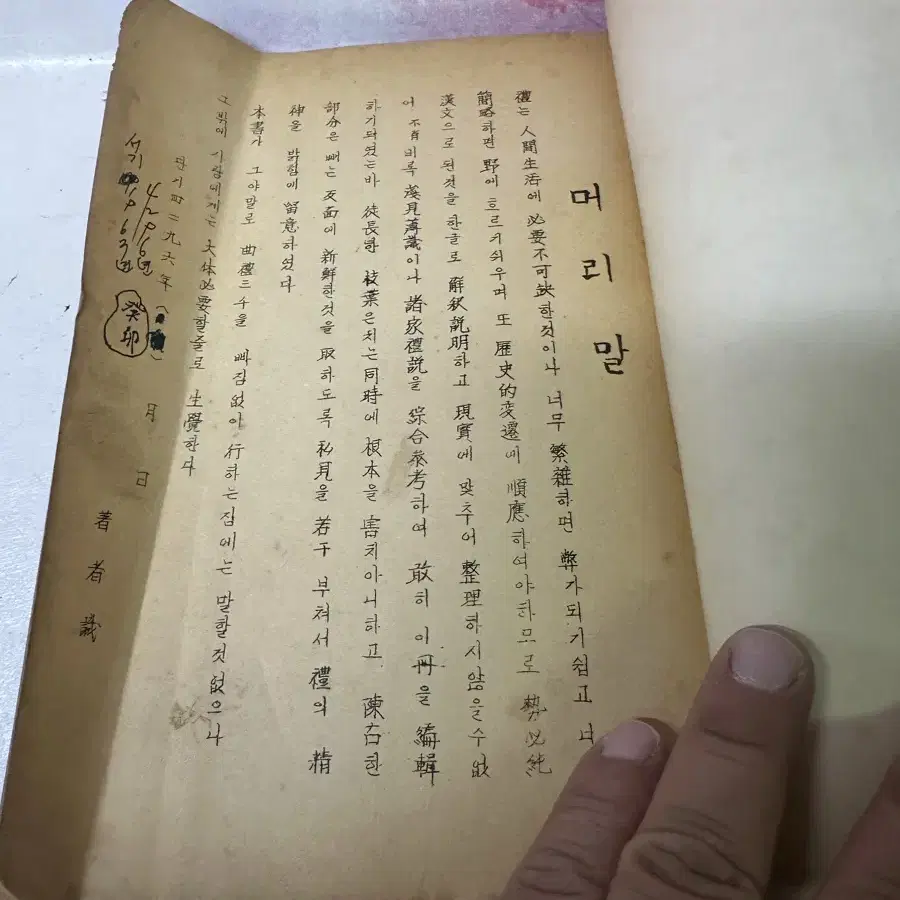 머리말
禮는 人間生活에 必要不可缺한것이나 너무 繁雜하면 弊가되기쉽고 너
簡略하면 野에 흐르기쉬우며 또 歷史的変遷에 順應하여야하므로 勢必純
漢文으로 된것을 한글로 解釈説明하고 現實에 맞추어 整理하지않을수 없
어 不肖비록 淺見薄識이나 諸家禮説을 綜合參考하여 敢히 이冊을 編輯
하기되였는바 徒長한 枝葉은치는同時에 根本을 害치아니하고 陳古한
部分은 빼는 反面에 新鮮한것을 取하도록 私見을 若干 부쳐서 禮의 精
神을 밝힘에 留意하였다
本書가 그야말로 曲禮三千을 빠짐없이 行하는집에는 말할것없으나
그밖에 사람에게는 大体必要할줄로 生覺한다
단기四二九六年 月 日
4296년
서기 1963년
癸卯
著者 識